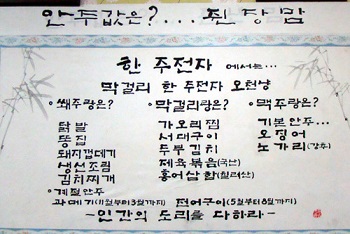 안주값은?...된장맘
한 주전자 에서는...
막걸리 한 주전자 오천냥
◦쐬주랑은? ◦막걸리랑은? ◦맥주랑은?
닭발 가오리찜 기본안주...
똥집 서대구이 오징어
돼지껍데기 두부김치 노가리(강추)
생선조림 제육볶음(국산)
김치찌개 홍어삼합(칠레산)
◦계절안주
과메기(11월부터3월까지) 전어구이(5월부터8월까지)
-인간의 도리를 다하라-